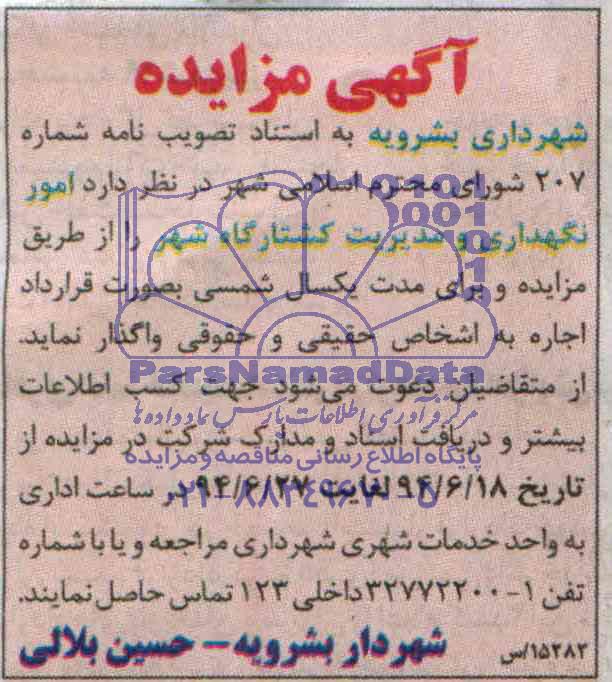 آگهی مزایده
شهرداری بشرویه به استناد تصویب نامه شماره
۲۰۷ شورای محترم اسلامی شهر در نظر دارد امور
نگهداری و مدیریت کشتارگاه شهر را از طریق
مزایده و برای مدت یکسال شمسی بصورت قرارداد
اجاره به اشخاص حقیقی و حقوقی واگذار نماید.
از متقاضیان دعوت می‌شود جهت کسب اطلاعات
بیشتر و دریافت اسناد و مدارک شرکت در مزایده از
تاریخ ۹۴/۶/۱۸ لغایت ۹۴/۶/۲۷ در ساعت اداری
به واحد خدمات شهری شهرداری مراجعه و یا با شماره
تفن ۱-۳۲۷۷۲۲۰۰ داخلی ۱۲۳ تماس حاصل نمایند.
شهردار بشرویه - حسین بلالی
۱۵۲۸۲/س
ParsNamadData
مرکز فرآوری اطلاعات پارس نماد داده ها
پایگاه اطلاع رسانی مناقصه و مزایده